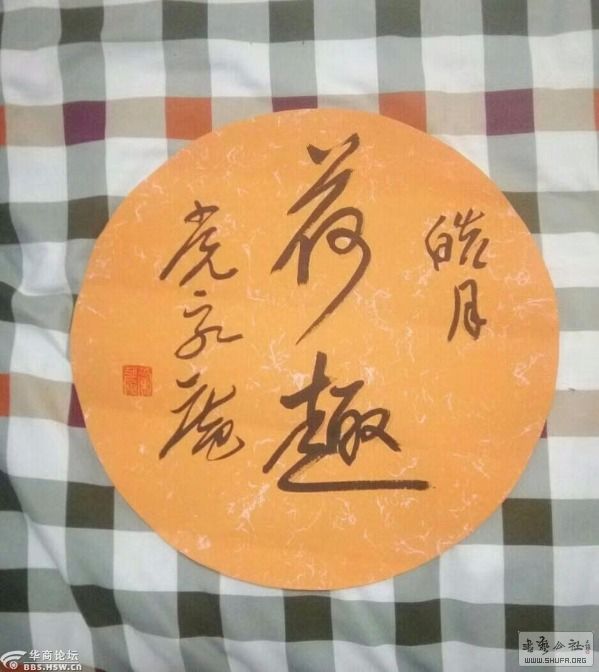 皓月
荷趣
党永庵
华商论坛
BBS.HSW.CN
WWW.SHUFA.ORG